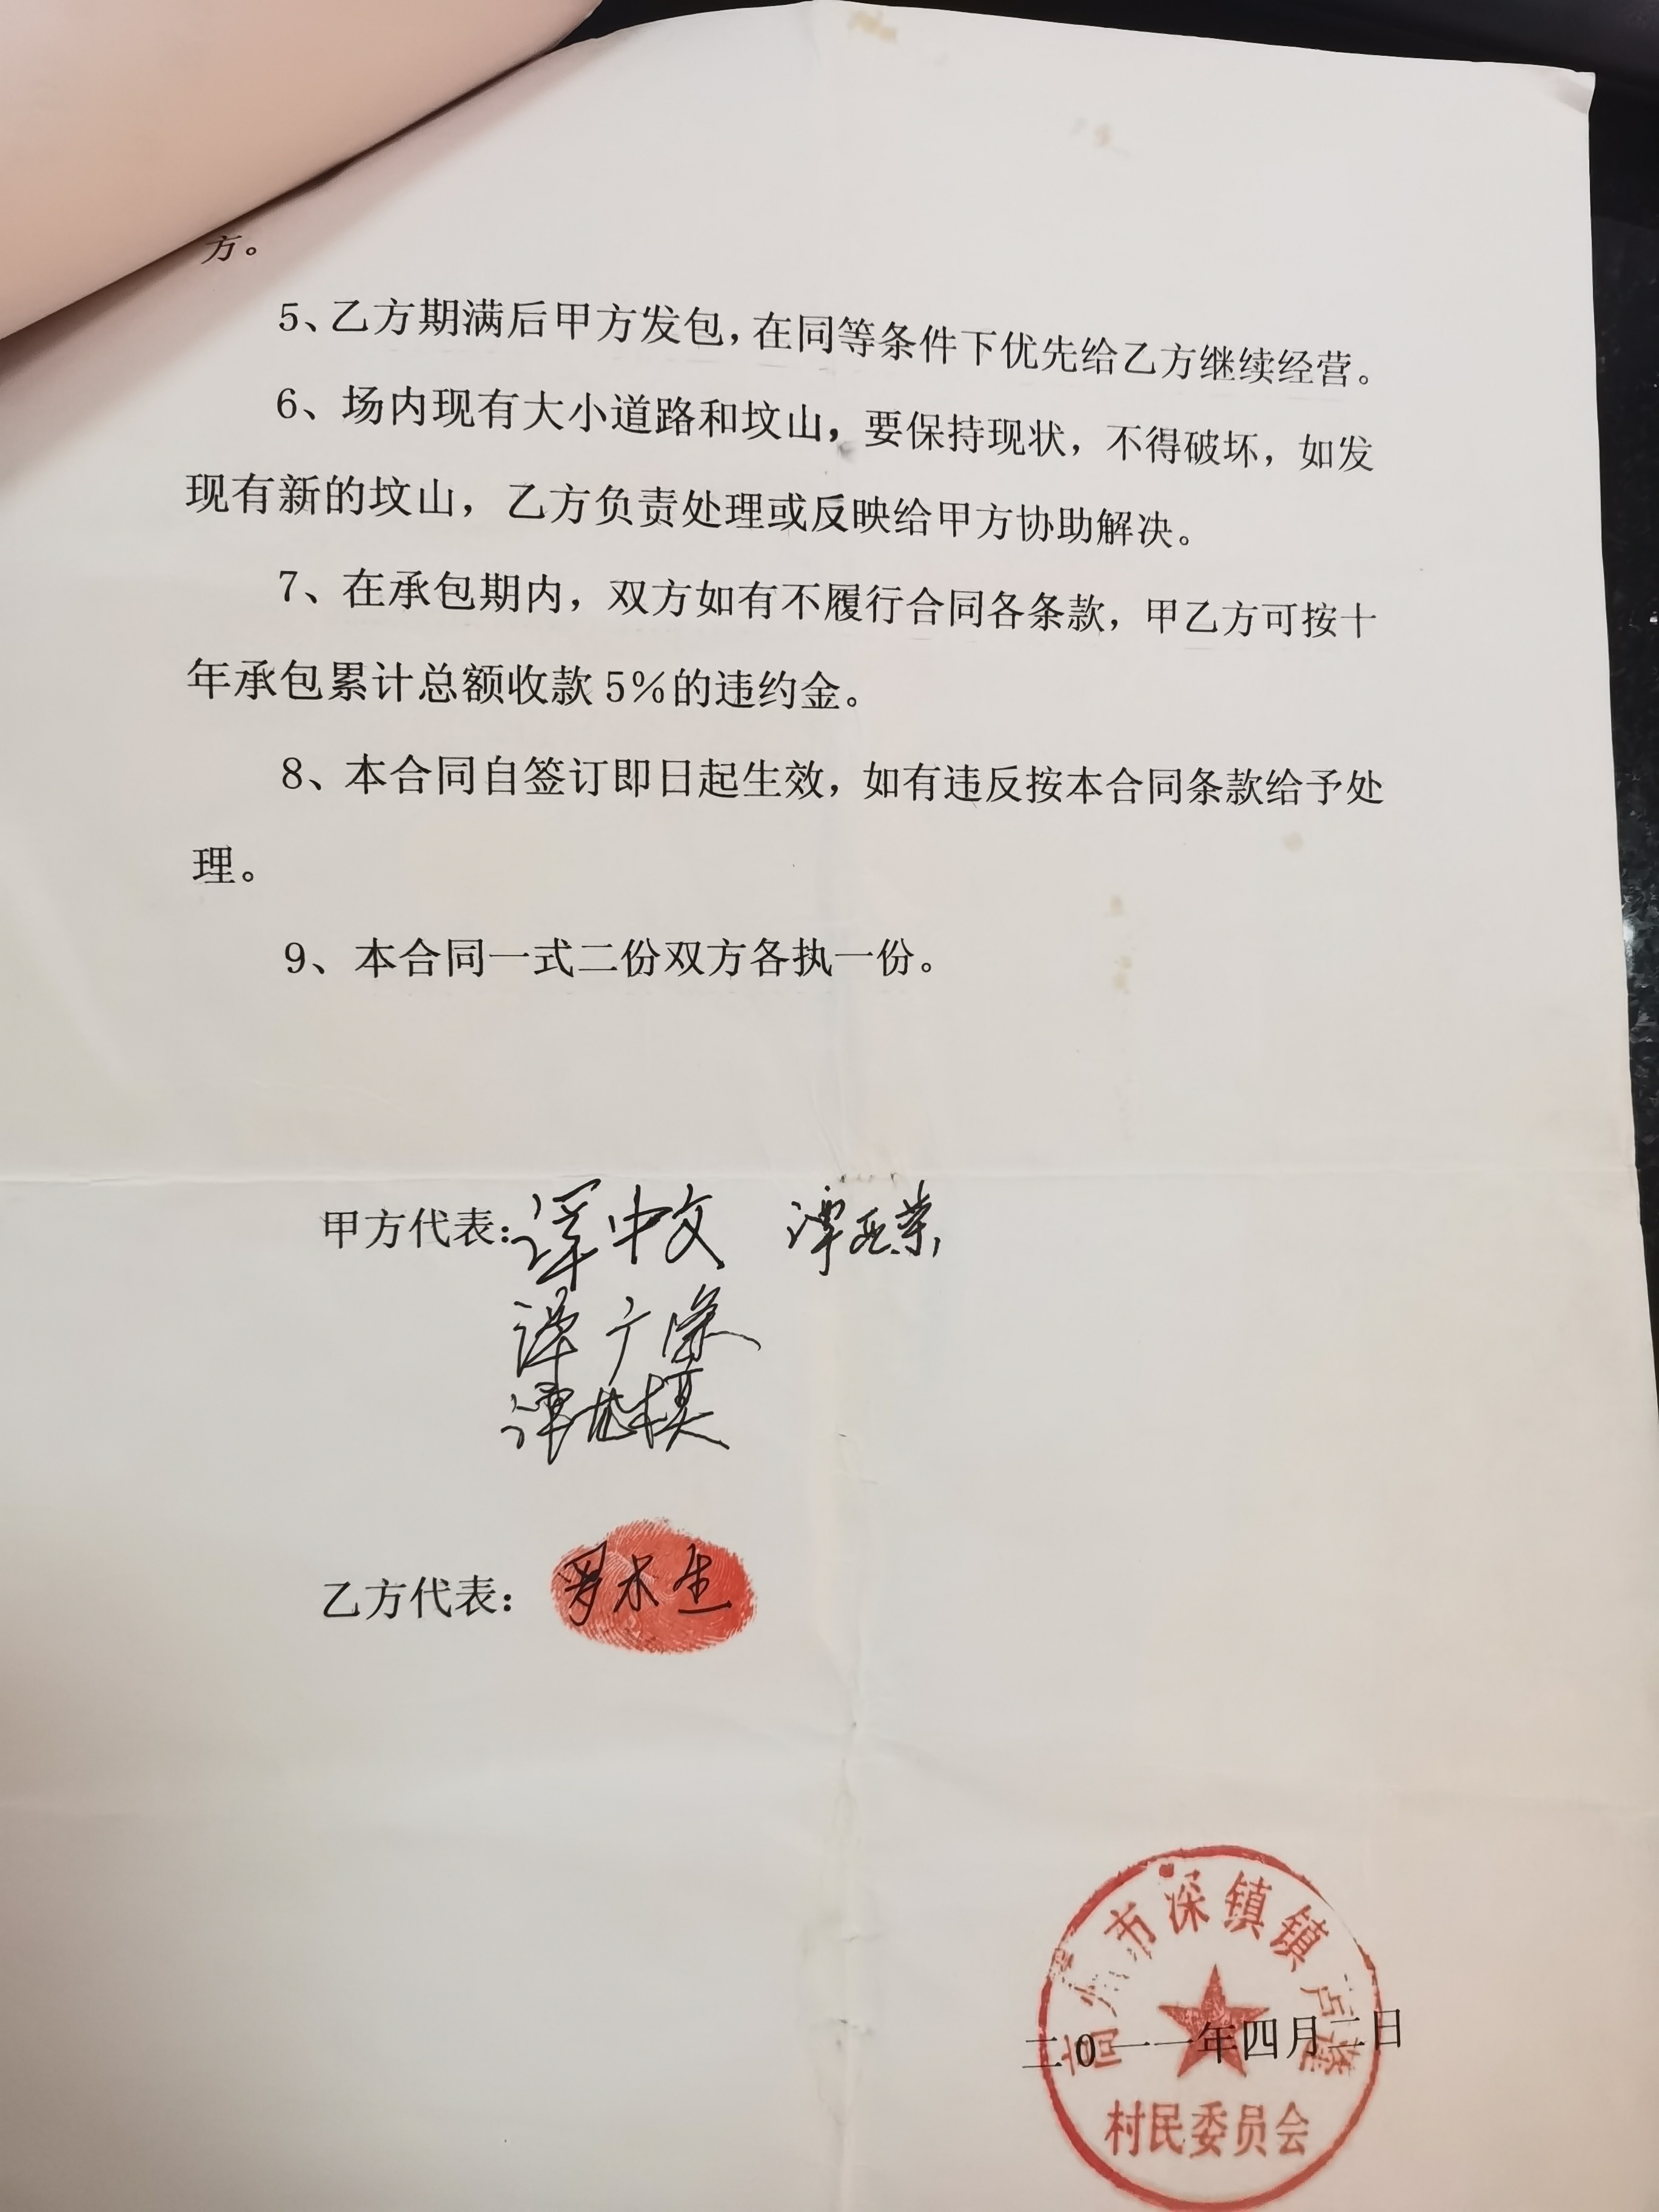 方。
5、乙方期满后甲方发包，在同等条件下优先给乙方继续经营。
6、场内现有大小道路和坟山，要保持现状，不得破坏，如发
现有新的坟山，乙方负责处理或反映给甲方协助解决。
7、在承包期内，双方如有不履行合同各条款，甲乙方可按十
年承包累计总额收款5%的违约金。
8、本合同自签订即日起生效，如有违反按本合同条款给予处
理。
9、本合同一式二份双方各执一份。
甲方代表：谭中文 谭亚荣
谭广深
谭 模
乙方代表：罗木生
高州市深镇镇
二0一一年四月二日
村民委员会